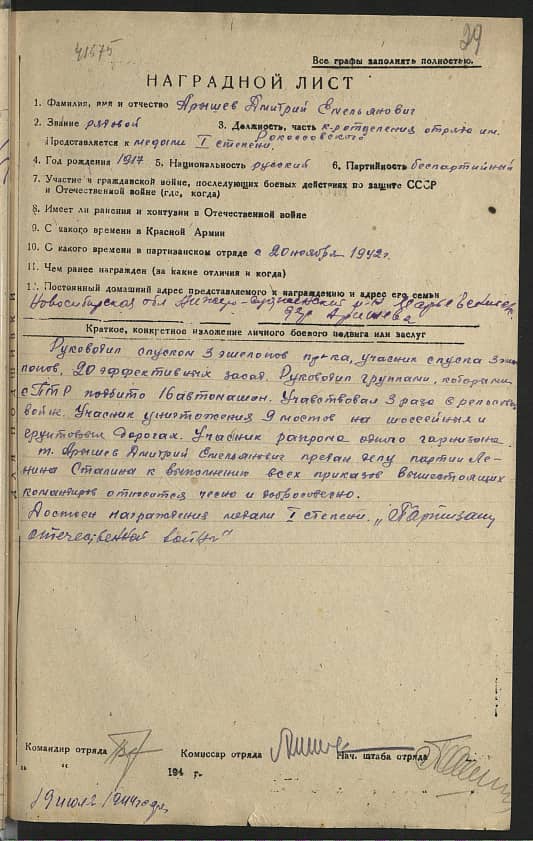 41675
29
Все графы заполнять полностью.
НАГРАДНОЙ ЛИСТ
1. Фамилия, имя и отчество Арышев Дмитрий Емельянович
2. Звание рядовой 3. Должность, часть к-р отделения отряда им. Рокоссовского
Представляется к медали I степени.
4. Год рождения 1917 5. Национальность русский 6. Партийность беспартийный
7. Участие в гражданской войне, последующих боевых действиях по защите СССР
и Отечественной войне (где, когда)
8. Имеет ли ранения и контузии в Отечественной войне
9. С какого времени в Красной Армии
10. С какого времени в партизанском отряде с 20 ноября 1942 г.
11. Чем ранее награжден (за какие отличия и когда)
12. Постоянный домашний адрес представляемого к награждению и адрес его семьи
Новосибирская обл р-н
дер Арышева
Краткое, конкретное изложение личного боевого подвига или заслуг
Руководил спуском 3 эшелонов пр-ка, учасник спуска 3 эше
лонов, 20 эффективных засад. Руководил группами, которыми
с ПТР подбито 16 автомашин. Учавствовал 3 раза в рельсовой
войне. Учасник уничтожения 9 мостов на шоссейных и
грунтовых дорогах. Учасник разгрома одного гарнизона.
т. Арышев Дмитрий Емельянович предан делу партии Ле-
нина Сталина к выполнению всех приказов вышестоящих
командиров относится чесно и добросовестно.
Достоен награждения медали I степени „Партизану
отечественной войны"
для подшивки
Командир отряда Комиссар отряда Нач. штаба отряда
" " 194 г.
19 июля 1944 года.